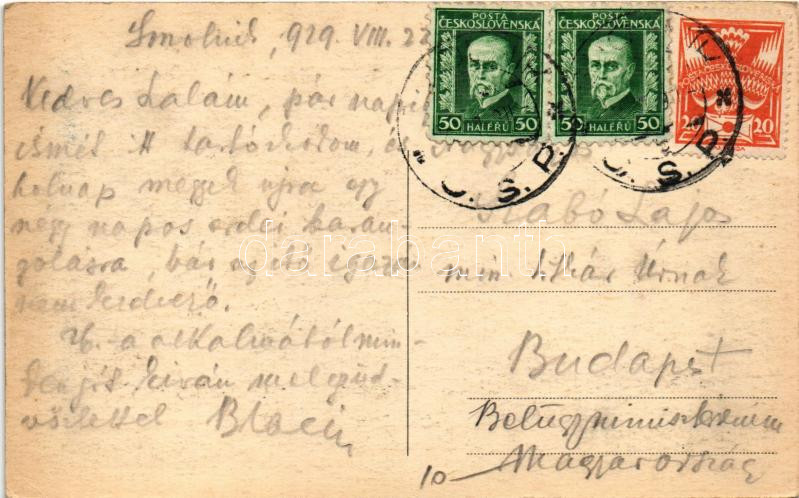 Smolnik, 929. VIII. 22
Kedves Lalám, pár napi
ismét itt tartózkodom, és
holnap megyek újra egy
négy napos erdei baran-
golásra, bár az idő igazán
nem kedvező.
a alkalmából min-
kíván meleg üd-
vözlettel
POSTA
ČESKOSLOVENSKÁ
50 HALÉŘŮ 50
POSTA
ČESKOSLOVENSKÁ
50 HALÉŘŮ 50
POŠTA ČESKOSLOVENSKÁ
20 20
Č. S. P.
Č. S. P.
Szabó Lajos
min. titkár Úrnak
Budapest
Belügyminisztérium
Magyarország
10
darabanth